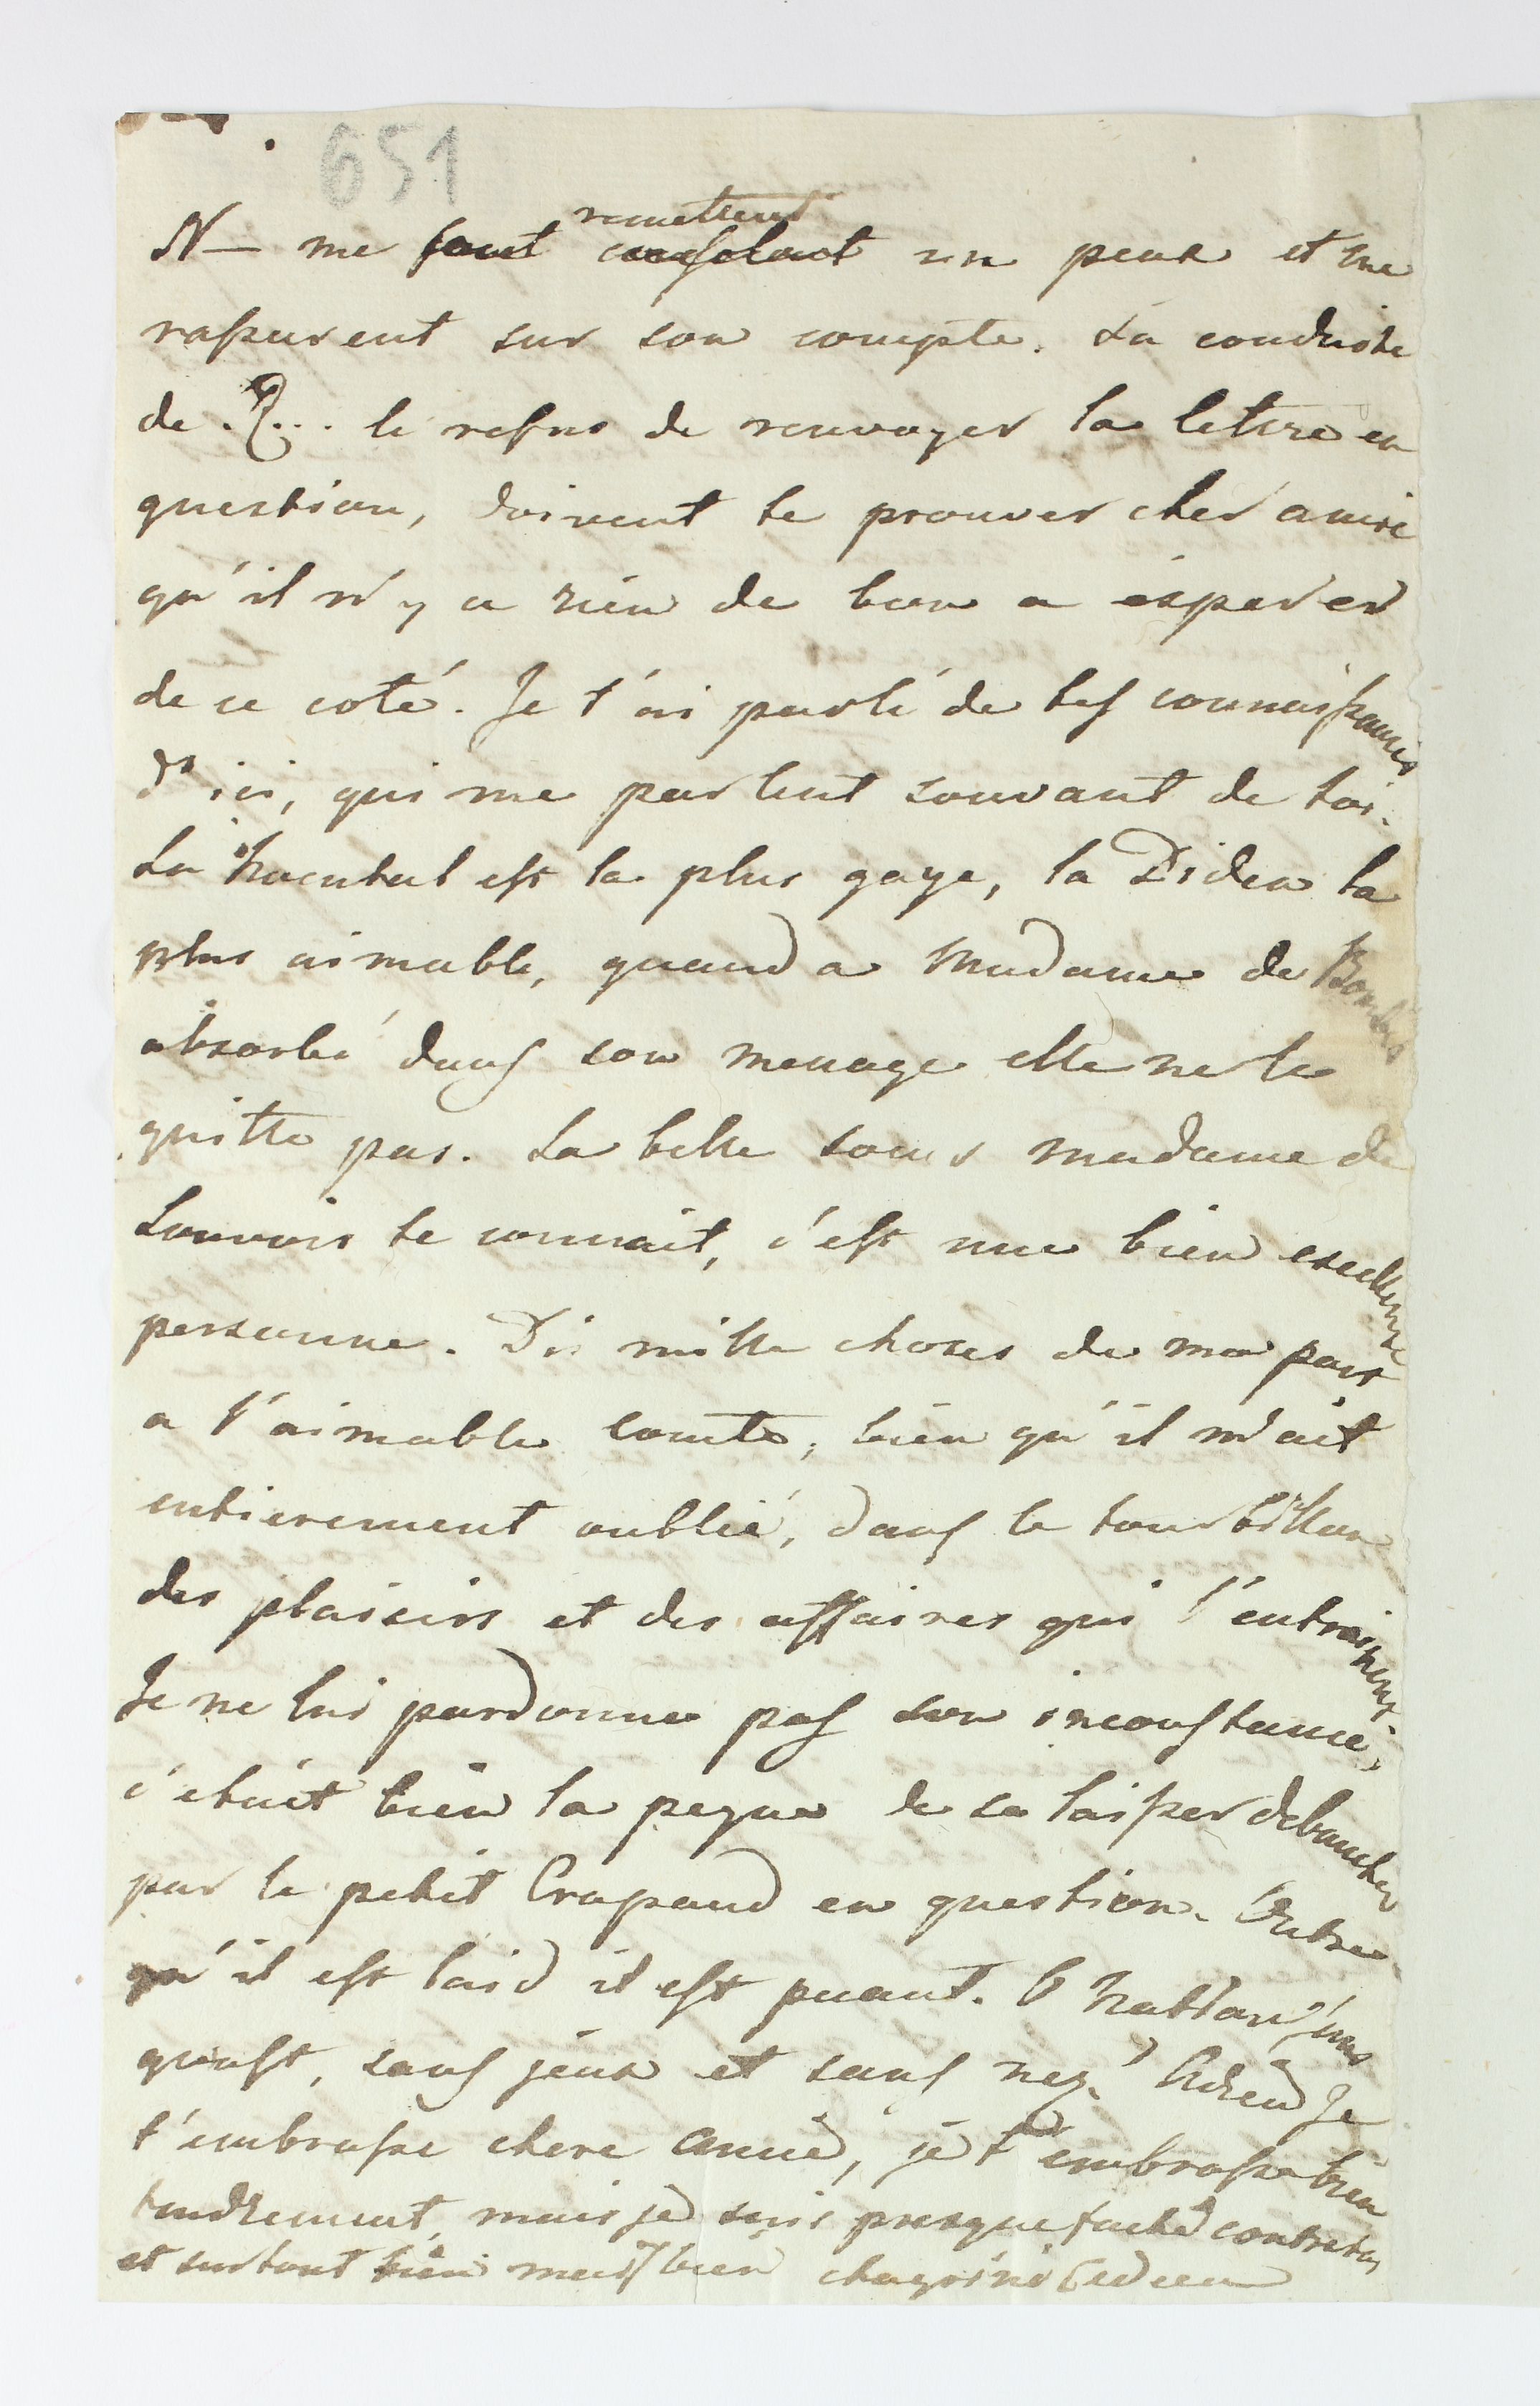 651
remettent
N— me font un peux et me
rassurent sur son compte. La conduite
de .R... le refus de renvoyer la lettre en
question, doivent te prouver cher amie
qu'il n'y a rien de bon a ésperer
de ce coté. Je t'ai parlé de tes connaissances
d'ici, qui me parlent souvant de toi.
La est la plus gaye, la Diden la
plus aimable, quand a Madame de
absorbé dans son menage elle ne le
quitte pas. La belle soeur madame de
Louvois te connait, c'est une bien excellente
personne. Dis mille choses de ma part
a l'aimable comte, bien qu'il m'ait
entierement oublié, dans le tourbillon
des plaisirs et des affaires qui l'entrainent.
Je ne lui pardonne pas son inconstance,
c'était bien la peyne de se laisser debaucher
par le petit Crapaud en question. Outre
qu'il est laid il est puant.
sans jeux et sans nez. Adieu Je
t'embrasse chere amie, je t'embrasse bien
tendrement, mais je suis presque faché contre toi,
et surtout bien chagriné Adieu